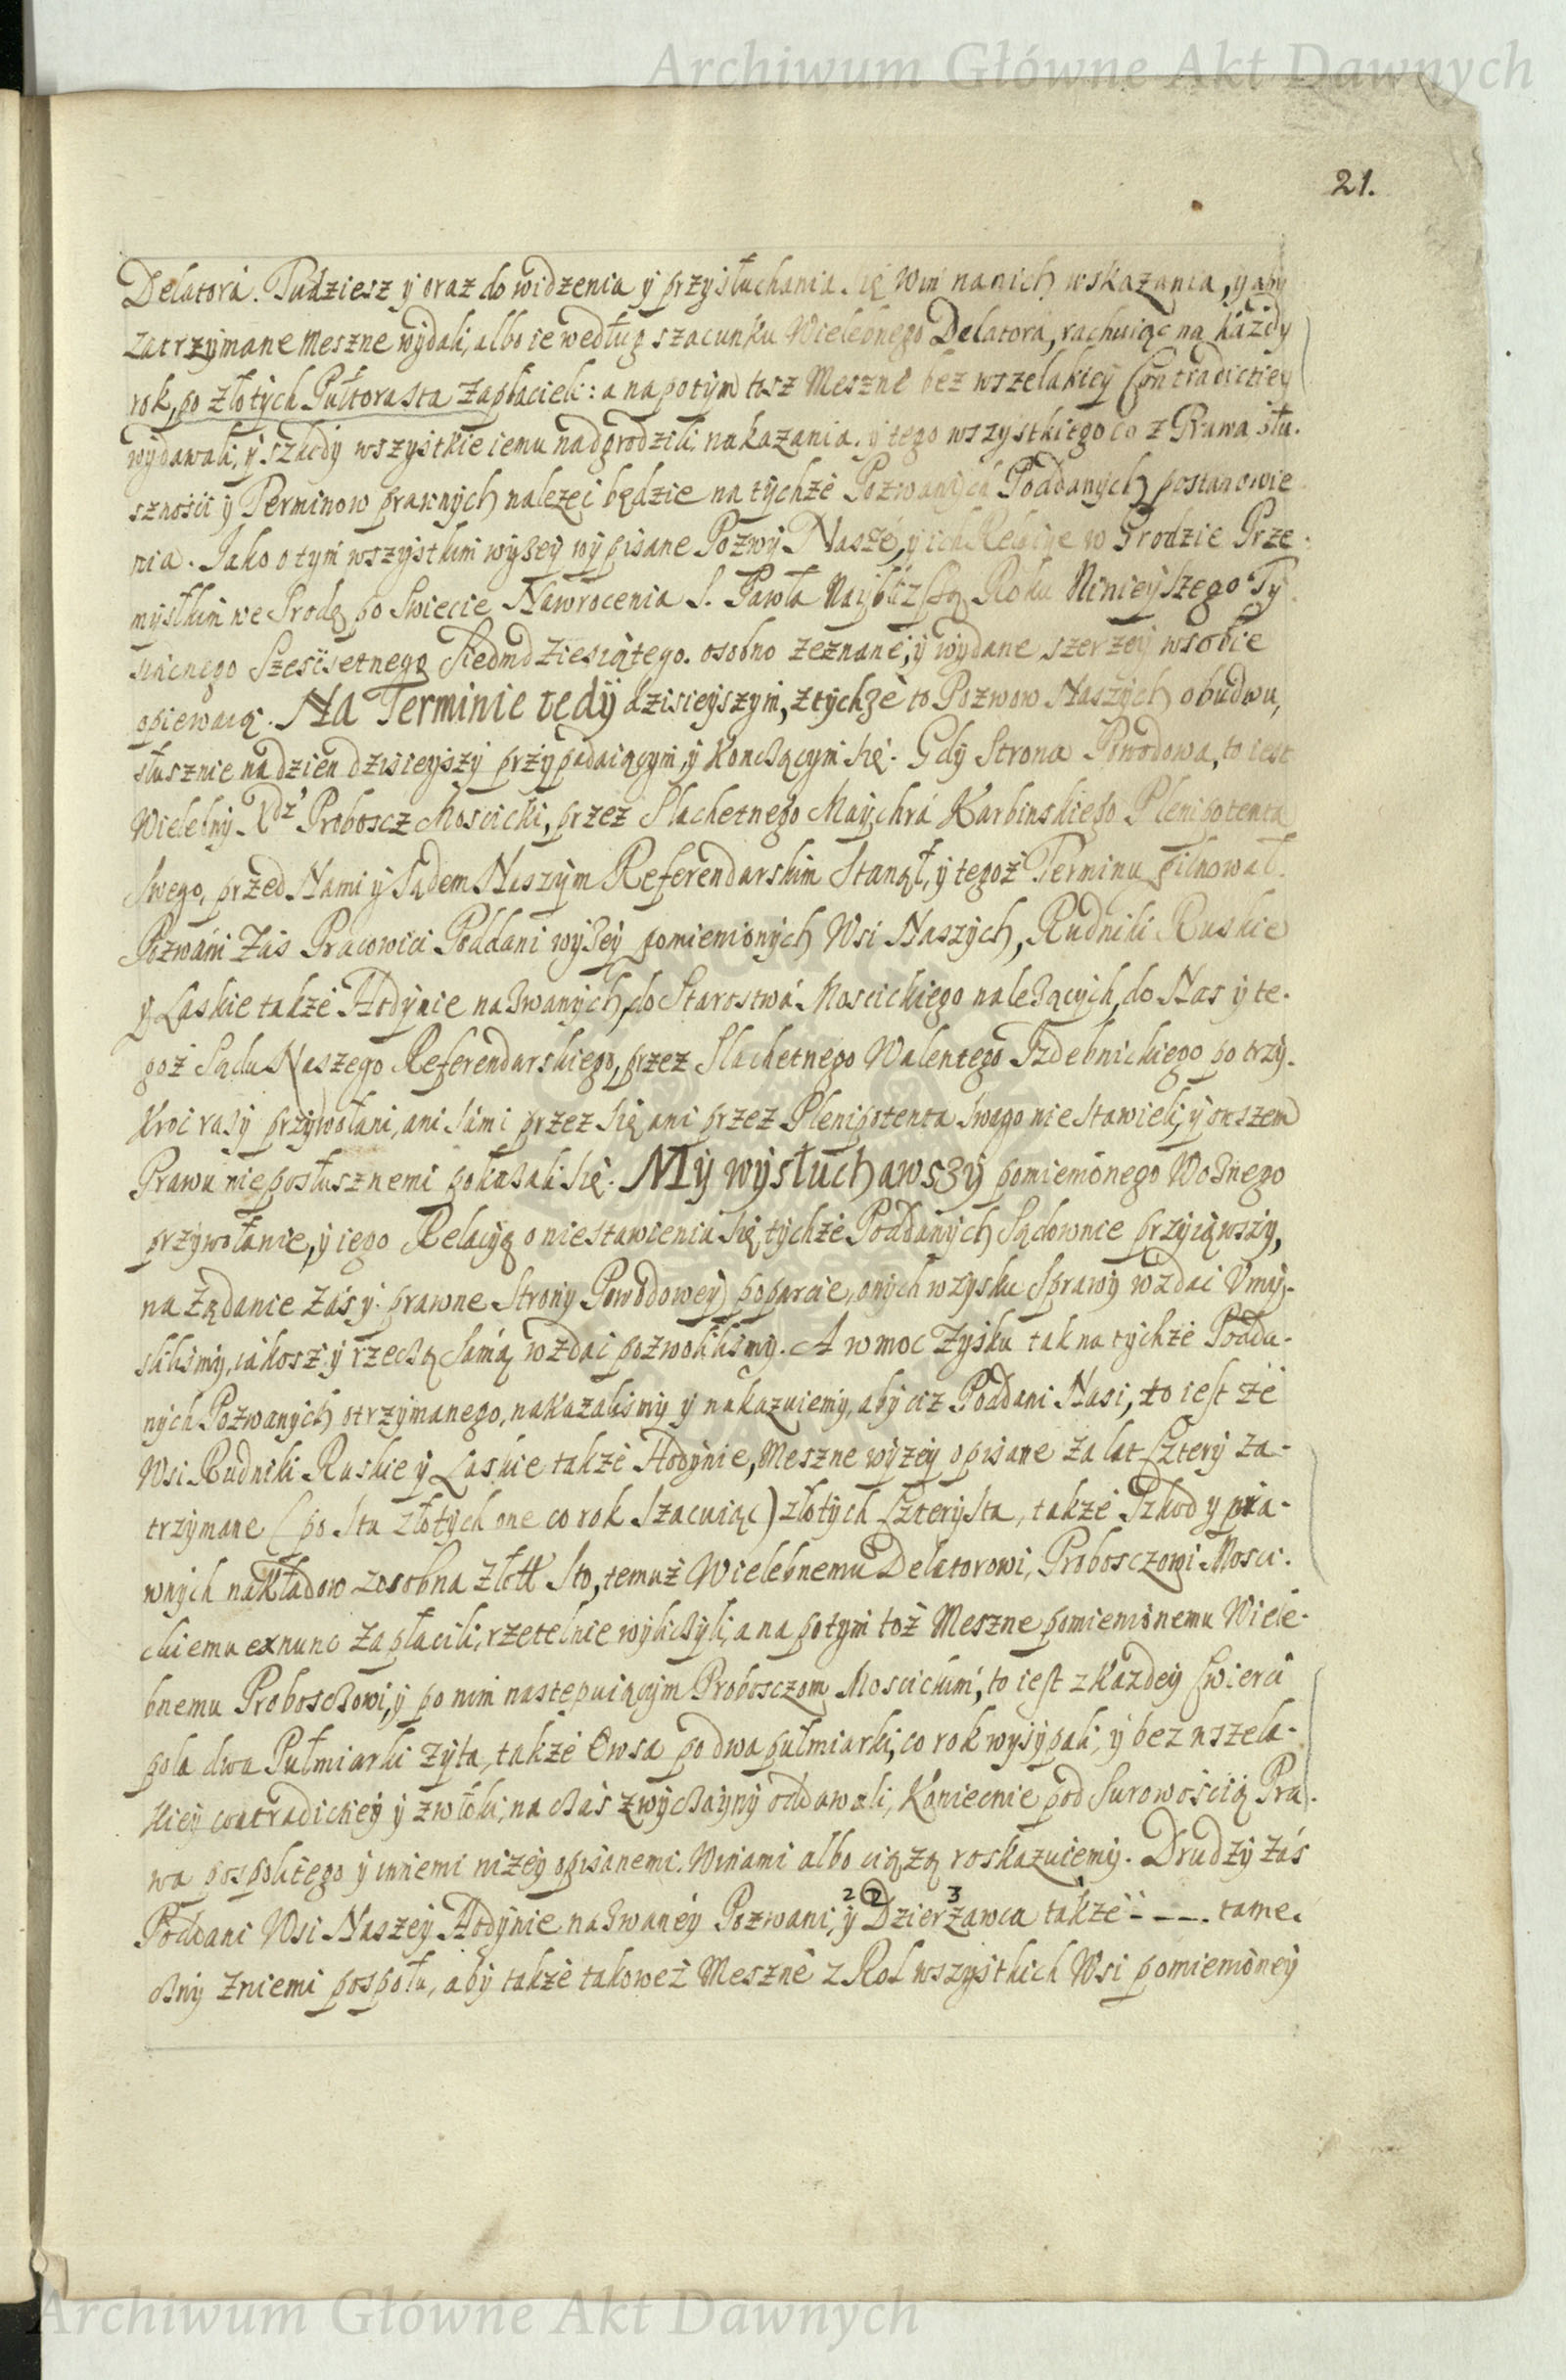 Archiwum Główne Akt Dawnych
21.
Delatorá. Tudziesz ÿ oraz do widzenia ÿ przÿsłuchania się Win nanich wskazania, ÿ abÿ
zatrzÿmane meszne wÿdali, albo ie według szacunku Wielebnego Delatorá, rachuiąc na káżdÿ
rok, po złotÿch Pułtorasta zapłacieli: a napotÿm tosz Meszné bez wszelakieÿ Contradictieÿ
wÿdawali, ÿ szkodÿ wszÿstkie iemu nadgrodzili nakazania, ÿ tego wszÿstkiego co z Prawa słu-
sznosci ÿ Terminow prawnÿch nalezec będzie na tÿchże Pozwanÿch Poddanÿch postanowie-
nia. Iako o tÿm wszÿstkim wÿżeÿ wÿpisane Pozwÿ Nasze, ÿ ich Relatie w Grodzie Prze-
mÿslkim we Srodę po Swiecie Nawrocenia S. Pawła Naÿbliższą Roku Ninieÿszego Tÿ-
siącnego Szescsetnego Siedmdziesiątego. osobno zeznane, ÿ wÿdane szerzeÿ wsobie
opiewaią. Na Terminie tedÿ dzisieÿszÿm, ztÿchże to Pozwow Naszÿch obudwu,
słusznie na dzien dzisieÿszÿ przÿpadaiącÿm, ÿ konczącÿm się. Gdÿ Strona Powodowa, to iest
Wielebnÿ Xdz Proboscz Moscicki, przez Slachetnego Maÿchrá Karbinskiego Plenipotenta
Swego, przed Nami ÿ Sądem Naszÿm Referendarskim Stanął, ÿ tegoż Terminu pilnował.
Pozwani Zás Pracowici Poddani wÿżeÿ pomienionÿch Wsi Naszÿch, Rudniki Ruskie
ÿ Laskie także Hodÿnie nazwanÿch, do Starostwá Moscickiego należącÿch, do Nas ÿ te-
goż Sądu Naszego Referendarskiego, przez Slachetnego Walentego Izdebnickiego po trzÿ-
kroc razÿ przÿwołani, ani sámi przez się ani przez Plenipotenta swego nie stawieli, ÿ owszem
Prawu nieposłusznemi pokazali się. Mÿ wÿsłuchawszÿ pomienionego Woznego
przÿwołanie, ÿ iego Relacÿą o niestawieniu się tÿchże Poddanÿch Sądownie przÿiąwszÿ,
na Żądanie zás ÿ prawne Stronÿ Powodoweÿ poparcie, onÿch wzÿsku Sprawÿ wzdac Umÿ-
sliliśmÿ, iakosz ÿ rzeczą sámą wzdac pozwoliliśmÿ. A w moc Zÿsku tak na tÿchże Podda-
nÿch Pozwanÿch otrzÿmanego, nakazaliśmÿ ÿ nakazuiemÿ, abÿ ciż Poddani Nasi, to iest ze
Wsi Rudniki Ruskie ÿ Laskie także Hodÿnie, Meszne wÿżeÿ opisane za lat Czterÿ za-
trzÿmane (po Stu złotÿch one co rok szacuiąc) złotÿch Czterÿsta, także Szkod ÿ pra-
wnÿch nakładow zosobna złott Sto, temuż Wielebnemu Delatorowi, Probosczowi Mosci-
ckiemu exnunc zapłacili, rzetelnie wÿliczÿli, a na potÿm toż Meszne pomienionemu Wiele-
bnemu Probosczowi, ÿ po nim nastepuiącÿm Probosczom Moscickim, to iest z każdeÿ Cwierci
pola dwa Pułmiarki żÿta, także Owsa po dwa pułmiarki, co rok wÿsÿpali, ÿ bez wszela-
kieÿ contradictieÿ ÿ zwłoki, na czás zwÿczaÿnÿ oddawali, koniecnie pod Surowoscią Pra-
wa pospolitego ÿ innemi niżeÿ opisanemi Winami albo ciążą roskazuiemÿ. Drudzÿ zás
2 2 3
Poddani Wsi Naszeÿ Hodÿnie nazwaneÿ Pozwani, ÿ Dzierżawca także - - - - tame-
cznÿ zniemi pospołu, abÿ także takoweż Meszné z Rol wszÿstkich Wsi pomienioneÿ
Archiwum Główne Akt Dawnych